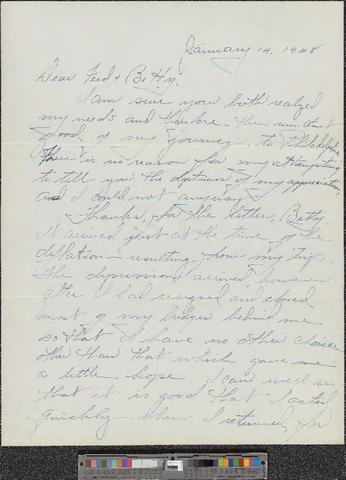 January 14, 1948
Dear Ferd & Betty,
I am sure you both realized
my needs and therefore the
good of my journey to Philadelphia
There is no reason for my attempting
to tell you the deepness of my appreciation,
and I could not anyway.
Thanks, for the letter, Betty
It arrived just at the time of the
deflation – resulting from my trip.
The depression arrived, however
after I had resigned and closed
most of my bridges behind me.
so that I have no other choice
other than that which gave me
a little hope. I can well see
that it is good that I acted
quickly. When I returned, for